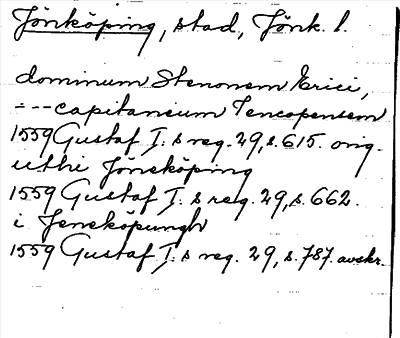 Jönköping, stad, Jönk. l.
dominum Stenonem Erici,
---capitaneum Iencopensem
1559 Gustaf I.s reg. 29, s. 615. orig.
uthi Jöneköping
1559 Gustaf I.s reg. 29, s. 662.
i Jeneköpungh
1559 Gustaf I.s reg. 29, s. 787. avskr.